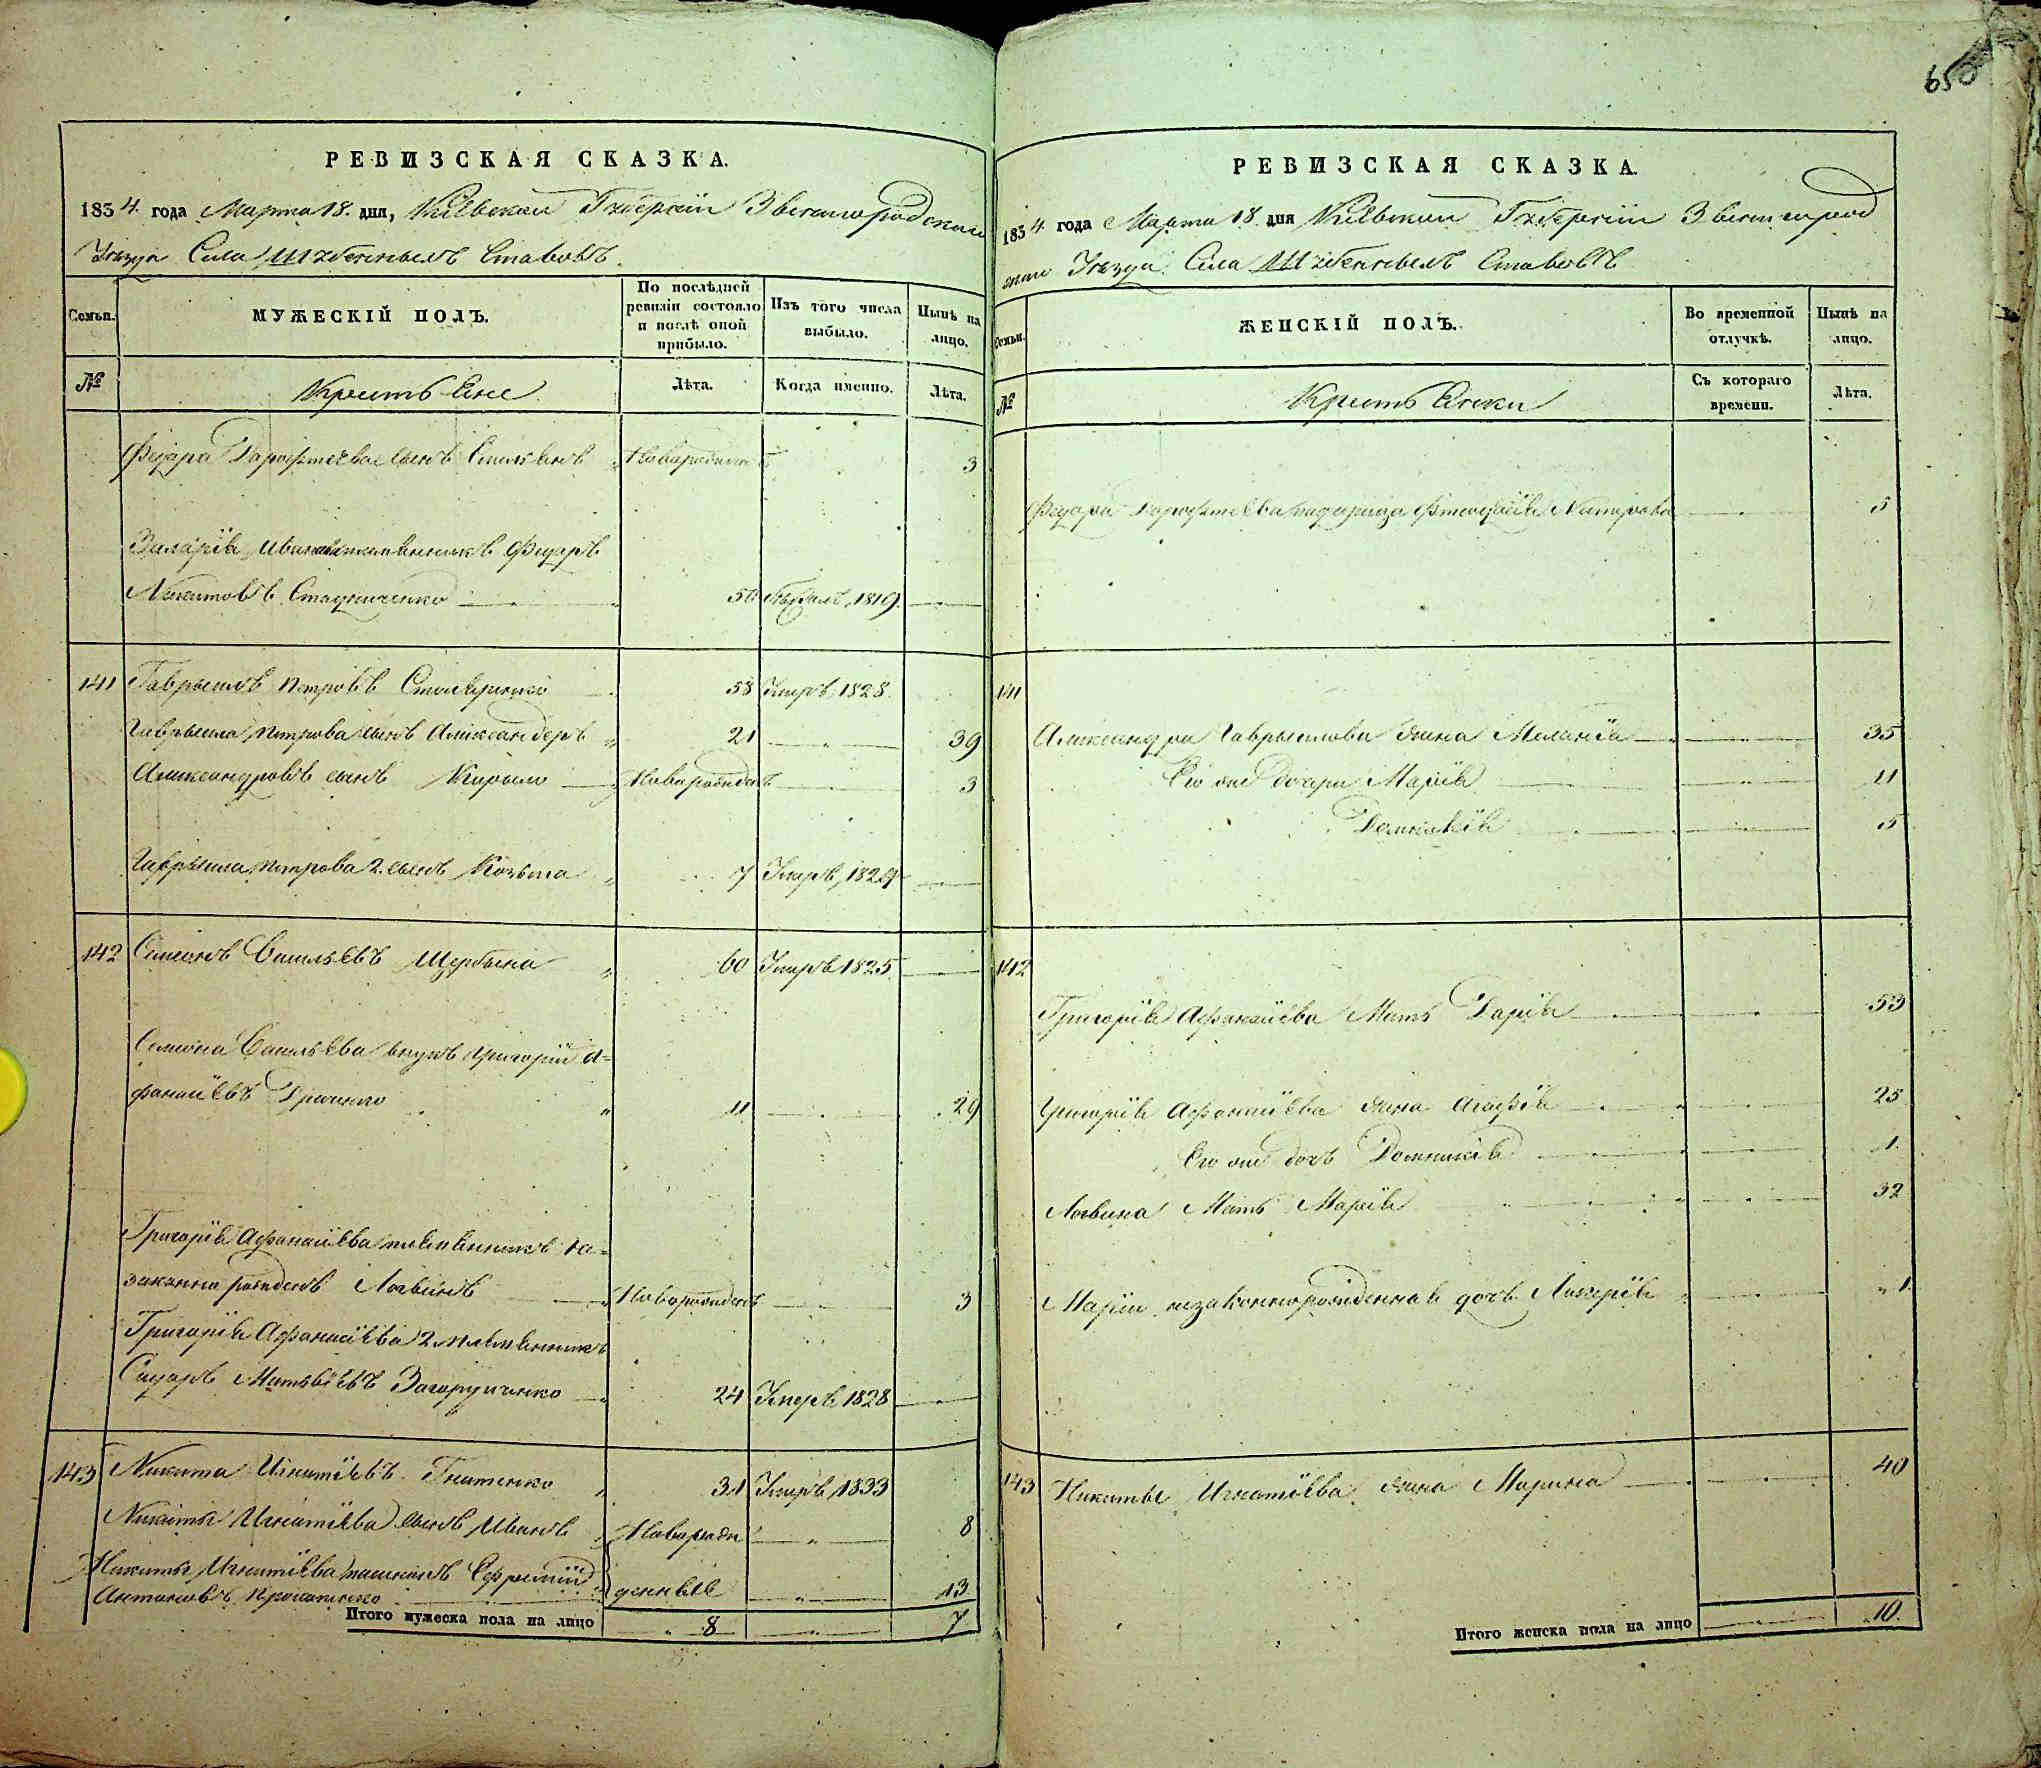 650
РЕВИЗСКАЯ СКАЗКА.
1834. года Марта 18. дня, Кіевской Губерніи Звенигородскаго
Уѣзда Села Шубенныхъ Ставовъ.
Семьи.
МУЖЕСКІЙ ПОЛЪ.
По послѣдней ревизіи состояло и послѣ оной прибыло.
Изъ того числа выбыло.
Нынѣ на лицо.
№
Крестьяне
Лѣта.
Когда именно.
Лѣта.
Федора сынъ Новорожденъ 3
Иванова племянникъ Федоръ
Никитовъ 1819.
141 Гаврыилъ Петровъ 58 Умеръ 1828.
Гаврыила Петрова сынъ Александеръ 21 39
Александровъ сынъ Кирыло Новорожденъ 3
Гаврыила Петрова 2. сынъ Козьма 7 Умеръ, 1829
142 Симеонъ Васильевъ Щербына 60 Умеръ 1825
Семиона Васильева внукъ Григорій А=
фанасіевъ 11 29
Григорія Афанасіева племянникъ не=
законно рожденъ Логвинъ Новорожденъ 3
Григорія Афанасіева 2 племянникъ
Сидоръ Матвѣевъ Загорулченко 24 Умеръ 1828
143 Никита Игнатіевъ Гнатенко 31 Умеръ 1833
Никиты Игнатіева сынъ Иванъ Новорож 8
Никиты Игнатіева Ефремій
Антоновъ денные 13
Итого мужеска пола на лицо 8 7
РЕВИЗСКАЯ СКАЗКА.
1834. года Марта 18. дня Кіевской Губерніи Звенигород
скаго Уѣзда. Села Шубенныхъ Ставовъ
Семьи.
ЖЕНСКІЙ ПОЛЪ.
Во временной отлучкѣ.
Нынѣ на лицо.
№
Крестьянки
Съ котораго времени.
Лѣта.
Федора 5
141
Александра Гаврыилова жена Меланія 35
Его же дочери Марія 11
Домникія 5
142
Григорія Афанасіева Мать Дарія 53
Григорія Афанасіева жена Агафія 25
Его же дочь Домникія 1.
Логвина Мать Марія 32
Маріи незаконнорожденная дочь Ликерія 1
143 Никиты Игнатіева жена Марина 40
Итого женска пола на лицо 10.